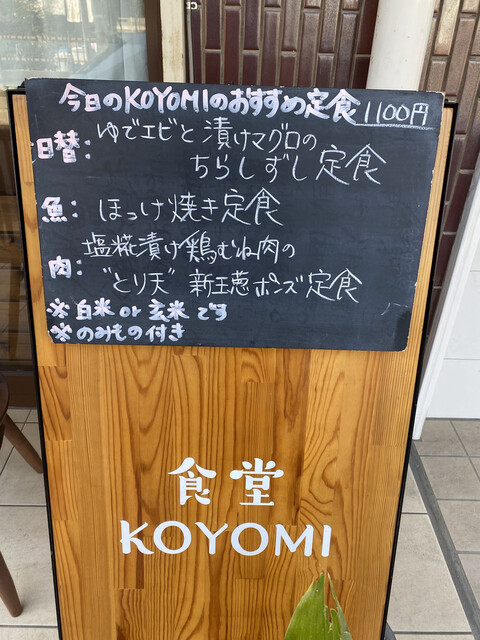 今日のKOYOMIのおすすめ定食 1100円
日替: ゆでエビと漬けマグロの
ちらしずし定食
魚: ほっけ焼き定食
肉: 塩糀漬け鶏むね肉の
"とり天" 新玉葱ポンズ定食
※白米or玄米です
※のみもの付き
食堂
KOYOMI